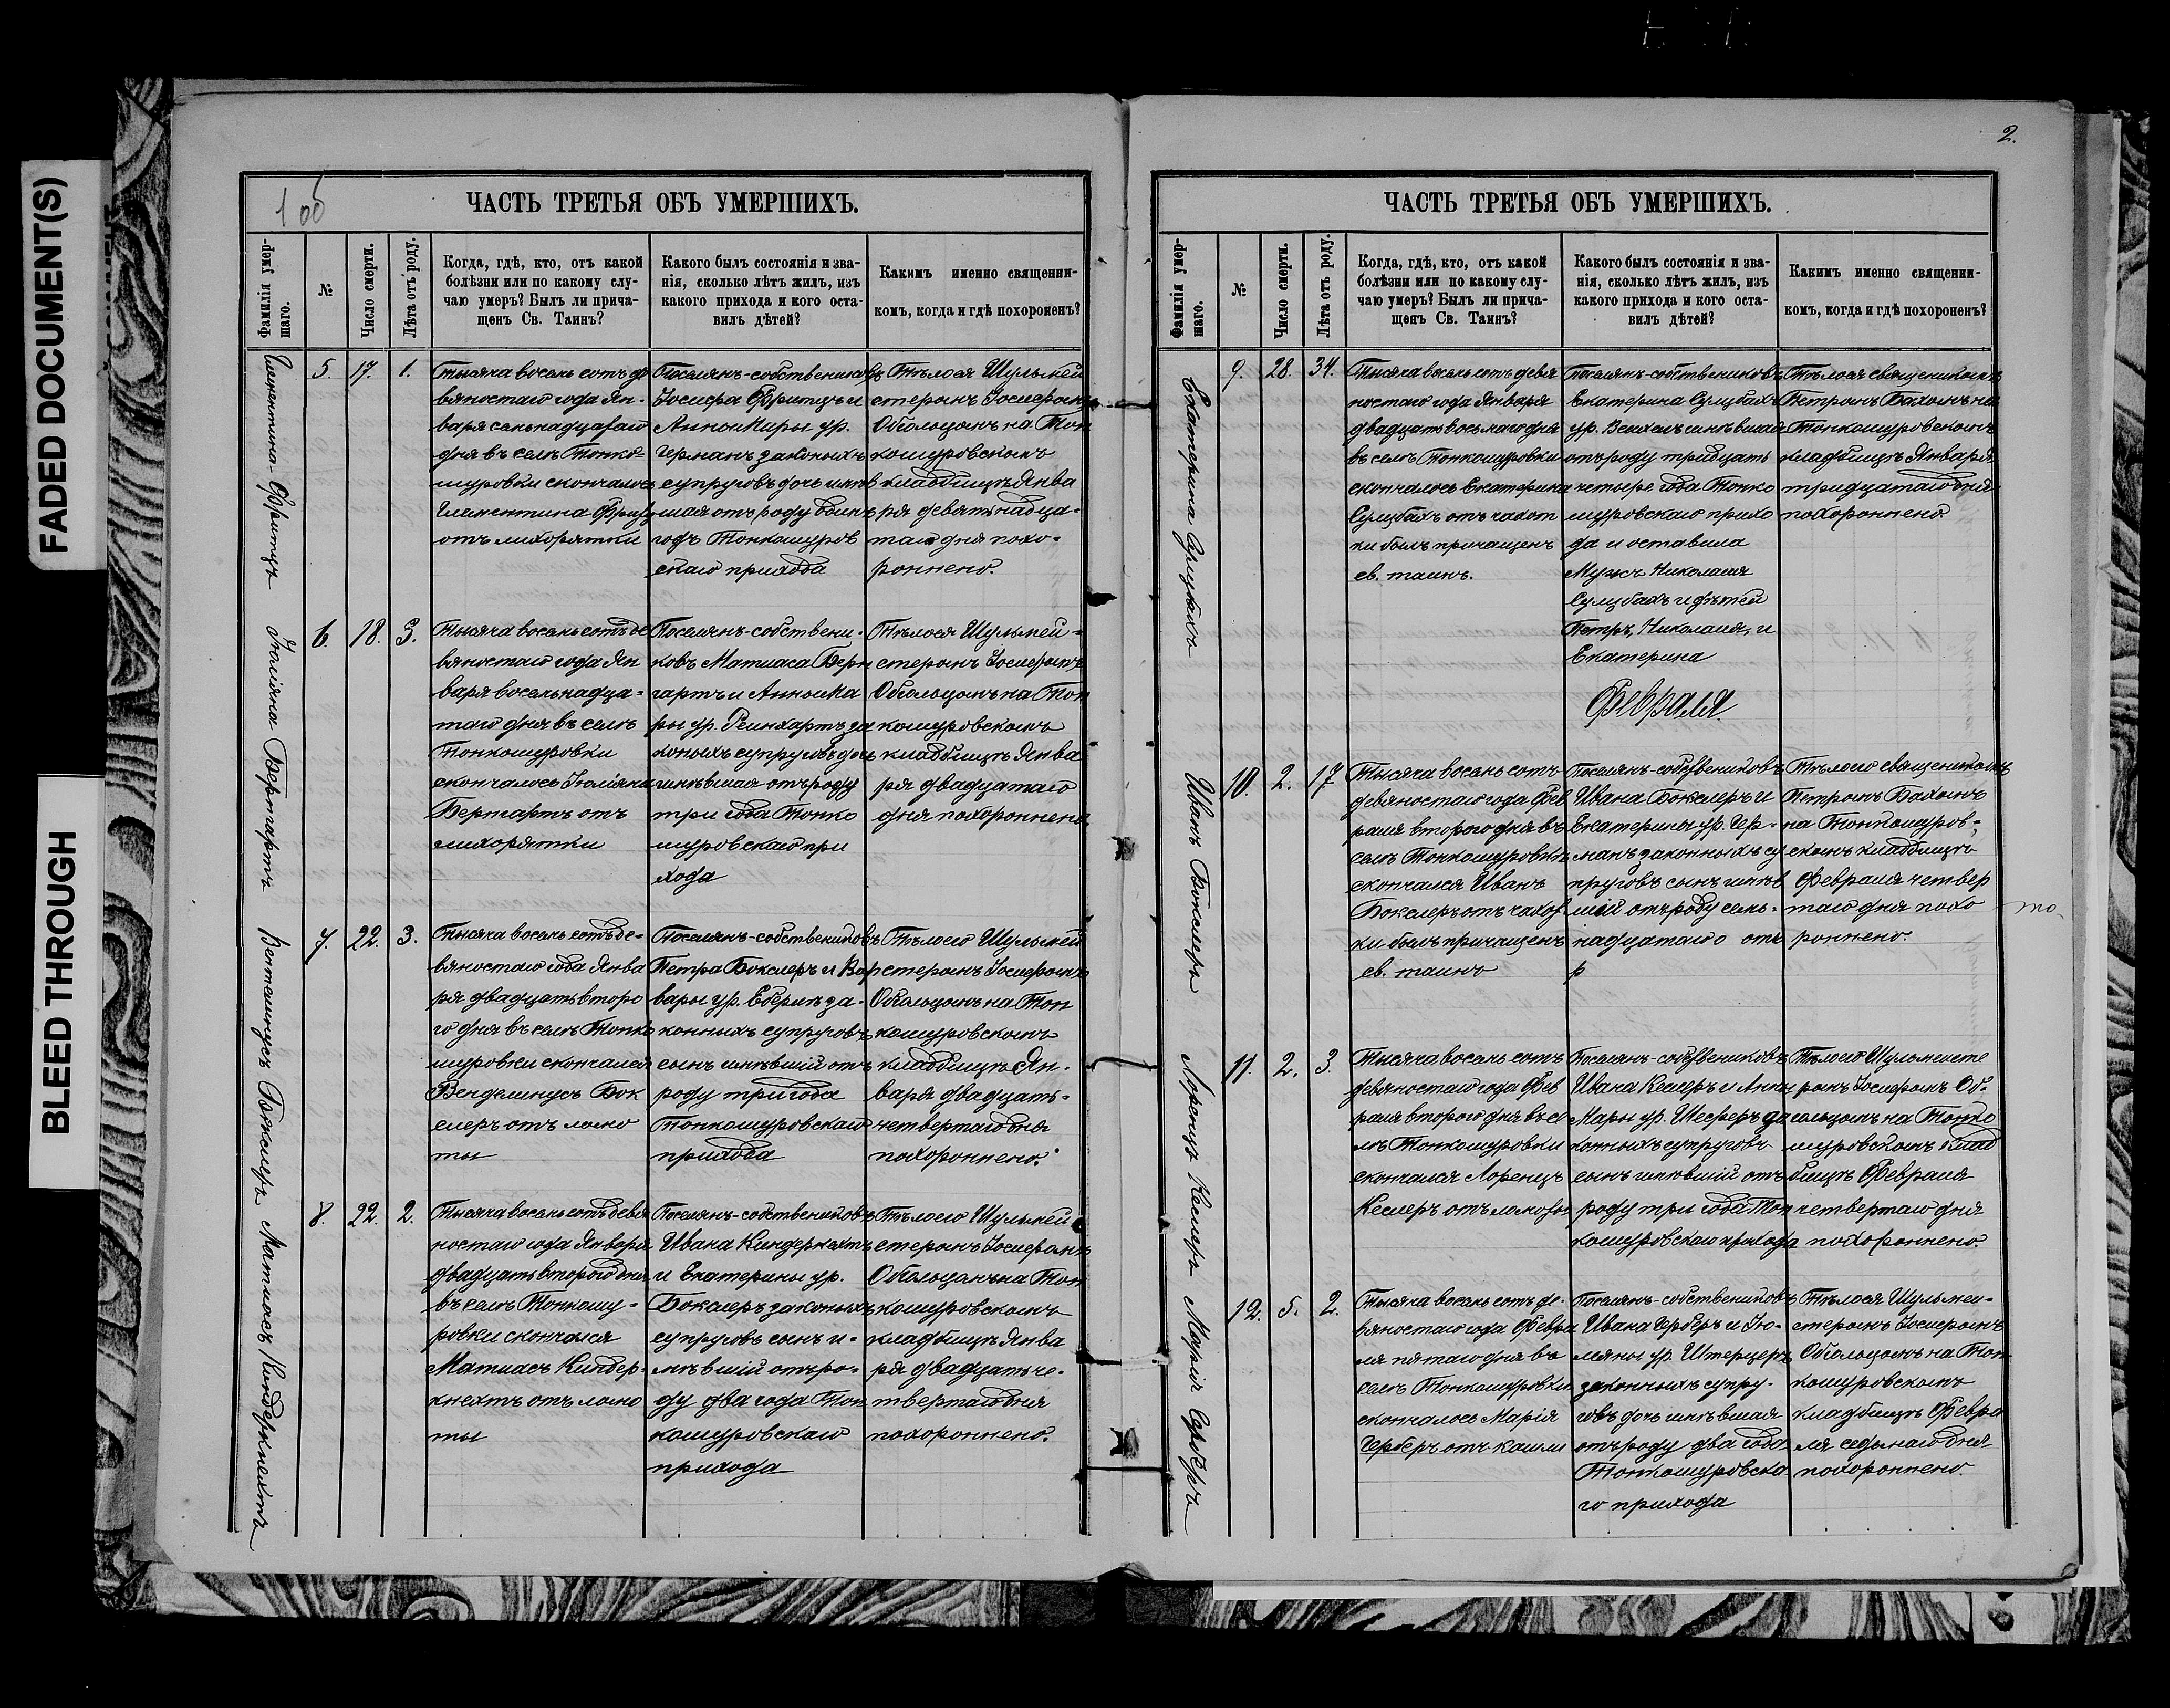 FADED DOCUMENT(S)
BLEED THROUGH
1 об
ЧАСТЬ ТРЕТЬЯ ОБЪ УМЕРШИХЪ.
Фамилія умер-
шаго.
№
Число смерти.
Лѣта отъ роду.
Когда, гдѣ, кто, отъ какой
болѣзни или по какому слу-
чаю умеръ? Былъ ли прича-
щенъ Св. Таинъ?
Какого былъ состоянія и зва-
нія, сколько лѣтъ жилъ, изъ
какого прихода и кого оста-
вилъ дѣтей?
Какимъ именно священни-
комъ, когда и гдѣ похороненъ?
Клементина Фритцъ
5. 17. 1.
Тысяча восемь сотъ де
вяностаго года Ян-
варя семьнадцатаго
дня въ селѣ Тонко-
шуровки скончалось
Клементина Фритцъ
отъ лихорятки
Поселянъ-собствениковъ
Іосифа Фритцъ и
Анны Мары ур.
Германъ законыхъ
супруговъ дочь имѣв
шая отъ роду одинъ
годъ Тонкошуров
скаго прихода
Тѣлоея Шульмей
стеромъ Іосифомъ
Обгольцомъ на Тон
кошуровскомъ
кладбищѣ Янва
ря девятнадца-
таго дня похо-
роннено.
Юліяна Бернгартъ
6. 18. 3.
Тысяча восемь сотъ де
вяностаго года Ян
варя восемьнадца-
таго дня въ селѣ
Тонкошуровки
скончалось Юліяна
Бернгартъ отъ
лихорятки
Поселянъ-собствени-
ковъ Матиаса Берн
гартъ и Анны Ма
ры ур. Реинхартъ за
коныхъ супруговъ дочь
имѣвшая отъ роду
три года Тонко
шуровскаго при
хода
Тѣлоея Шульмей-
стеромъ Іосифомъ
Обгольцомъ на Тон
кошуровскомъ
кладбищѣ Янва
ря двадцатаго
дня похороннено.
Венделинусъ Бокслеръ
7. 22. 3.
Тысяча восемь сотъ де-
вяностаго года Янва
ря двадцать второ
го дня въ селѣ Тонко
шуровки скончался
Венделинусъ Бок
слеръ отъ ломо
ты
Поселянъ-собствениковъ
Петра Бокслеръ и Вар
вары ур. Еберле за-
конныхъ супруговъ
сынъ имѣвшій отъ
роду три года
Тонкошуровскаго
прихода
Тѣлоего Шульмей
стеромъ Іосифомъ
Обгольцомъ на Тон
кошуровскомъ
кладбищѣ Ян-
варя двадцать-
четвертаго дня
похороннено.
Матиасъ Киндеркнехтъ
8. 22. 2.
Тысяча восемь сотъ девя
ностаго года Января
двадцать второго дня
въ селѣ Тонкошу-
ровки скончался
Матиасъ Киндер-
кнехтъ отъ ломо
ты
Поселянъ-собствениковъ
Ивана Киндеркнехтъ
и Екатерины ур.
Бокслеръ законыхъ
супруговъ сынъ и-
мѣвшій отъ ро-
ду два года Тон
кошуровскаго
прихода
Тѣлоего Шульмей
стеромъ Іосифомъ
Обгольцомъ на Тон
кошуровскомъ
кладбищѣ Янва
ря двадцать че-
твертаго дня
похороннено.
2.
ЧАСТЬ ТРЕТЬЯ ОБЪ УМЕРШИХЪ.
Фамилія умер-
шаго.
№
Число смерти.
Лѣта отъ роду.
Когда, гдѣ, кто, отъ какой
болѣзни или по какому слу-
чаю умеръ? Былъ ли прича-
щенъ Св. Таинъ?
Какого былъ состоянія и зва-
нія, сколько лѣтъ жилъ, изъ
какого прихода и кого оста-
вилъ дѣтей?
Какимъ именно священни-
комъ, когда и гдѣ похороненъ?
Екатерина Сулцбахъ
9. 28. 34.
Тысяча восемь сотъ девя
ностаго года Января
двадцать восьмаго дня
въ селѣ Тонкошуровки
скончалось Екатерина
Сулцбахъ отъ чахот
ки былъ причащенъ
св. таинъ.
Поселянъ-собствениковъ
Екатерина Сулцбахъ
ур. Венхель имѣвшая
отъ роду тридцать
четыре года Тонко
шуровскаго прихо
да и оставила
Мужъ Николая
Сулцбахъ и дѣтей
Петръ, Николая, и
Екатерина
Тѣлоея священикомъ
Петромъ Бахомъ на
Тонкошуровскомъ
кладбищѣ Января
тридцатаго дня
похороннено.
Февраля.
Иванъ Бокслеръ
10. 2. 17
Тысяча восемь сотъ
девяностаго года Фев
раля второго дня въ
селѣ Тонкошуровки
скончался Иванъ
Бокслеръ отъ чахот
ки былъ причащенъ
св. таинъ
Поселянъ-собствениковъ
Ивана Бокслеръ и
Екатерины ур. Гер-
манъ законныхъ су
пруговъ сынъ имѣв
шій отъ роду семь-
надцатаго отъ
р
Тѣлоего священикомъ
Петромъ Бахомъ
на Тонкошуров-
скомъ кладбищѣ
Февраля четвер
таго дня похо
роннено.
то
Лоренцъ Кеслеръ
11. 2. 3.
Тысяча восемь сотъ
девяностаго года Фев
раля второго дня въ се
лѣ Тонкошуровки
скончался Лоренцъ
Кеслеръ отъ ломоты
Поселянъ-собствениковъ
Ивана Кеслеръ и Анны
Мары ур. Шеферъ за
конныхъ супруговъ
сынъ имѣвшій отъ
роду три года Тон
кошуровскаго прихода
Тѣлоего Шульмеисте
ромъ Іосифомъ Об-
гольцомъ на Тонко
шуровскомъ клад
бищѣ Февраля
четвертаго дня
похороннено.
Марія Герберъ
12. 5. 2.
Тысяча восемь сотъ де-
вяностаго года Февра
ля пятаго дня въ
селѣ Тонкошуровки
скончалось Марія
Герберъ отъ кашли
Поселянъ-собствениковъ
Ивана Герберъ и Ю-
ляны ур. Штерцеръ
законныхъ супру-
говъ дочь имѣвшая
отъ роду два года
Тонкошуровска
го прихода
Тѣлоея Шульмеи-
стеромъ Іосифомъ
Обгольцомъ на Тон
кошуровскомъ
кладбищѣ Февра
ля седьмаго дня
похороннено.